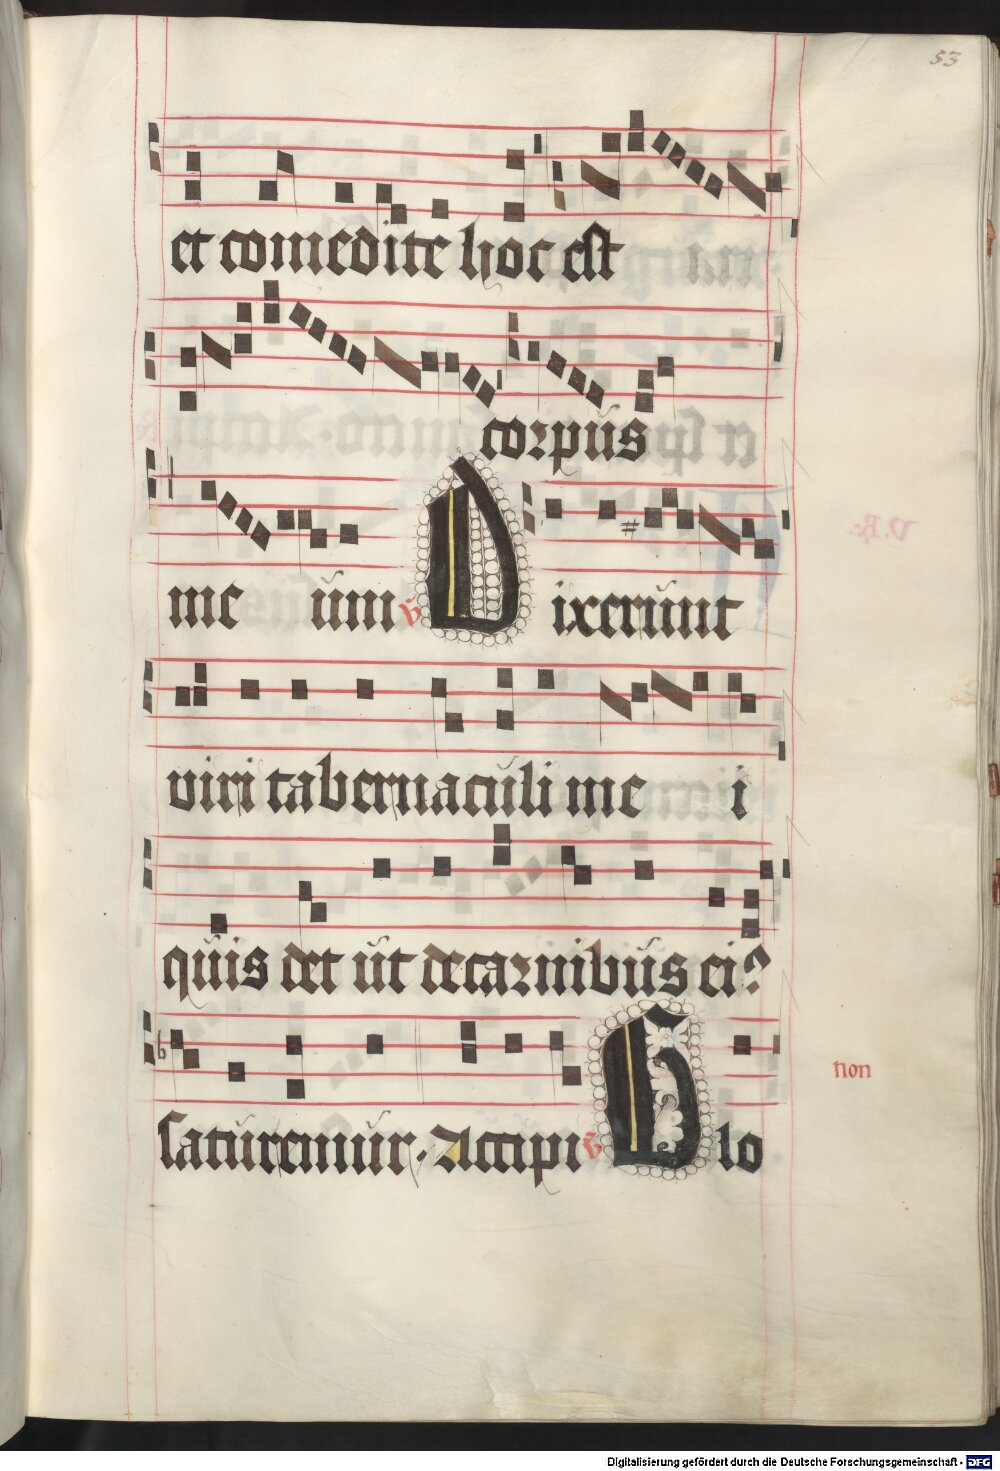 53
et comedite hoc est
corpus
me um ℣ Dixerunt
viri tabernaculi me i
quis det ut decarnibus ei?
non
saturemur. Accipi ℣ Glo
Digitalisierung gefördert durch die Deutsche Forschungsgemeinschaft - DFG